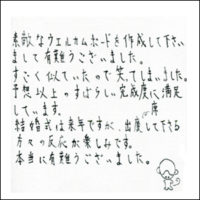 素敵なウェルカムボードを作成して下さい
まして有難うございました。
すごく似ていたので笑てしまいました。
予想以上のすばらしい完成度に満足
しています。
席
結婚式は来年ですが、出度して下さる
方々の反応が楽しみです。
本当に有難うございました。